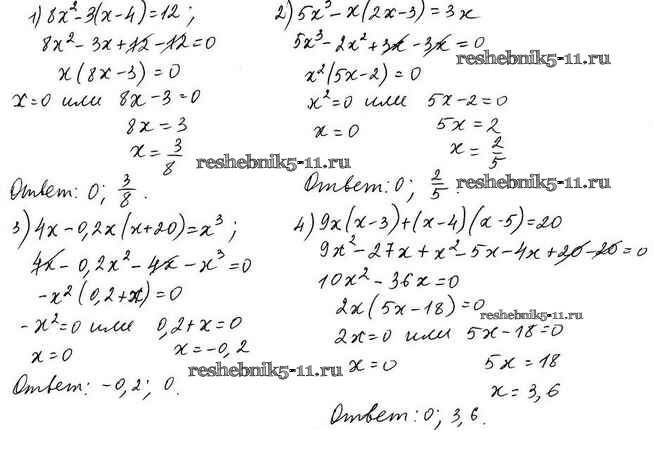 1) 8x² - 3(x - 4) = 12;
8x² - 3x + 12 - 12 = 0
x(8x - 3) = 0
x = 0 или 8x - 3 = 0
8x = 3
x = 3/8
Ответ: 0; 3/8.
2) 5x³ - x(2x - 3) = 3x
5x³ - 2x² + 3x - 3x = 0
reshebnik5-11.ru
x²(5x - 2) = 0
x² = 0 или 5x - 2 = 0
x = 0 5x = 2
x = 2/5
reshebnik5-11.ru
Ответ: 0; 2/5.
3) 4x - 0,2x(x + 20) = x³;
4x - 0,2x² - 4x - x³ = 0
-x²(0,2 + x) = 0
-x² = 0 или 0,2 + x = 0
x = 0 x = -0,2
reshebnik5-11.ru
Ответ: -0,2; 0.
4) 9x(x - 3) + (x - 4)(x - 5) = 20
9x² - 27x + x² - 5x - 4x + 20 - 20 = 0
10x² - 36x = 0
2x(5x - 18) = 0
reshebnik5-11.ru
2x = 0 или 5x - 18 = 0
x = 0 5x = 18
x = 3,6
Ответ: 0; 3,6.